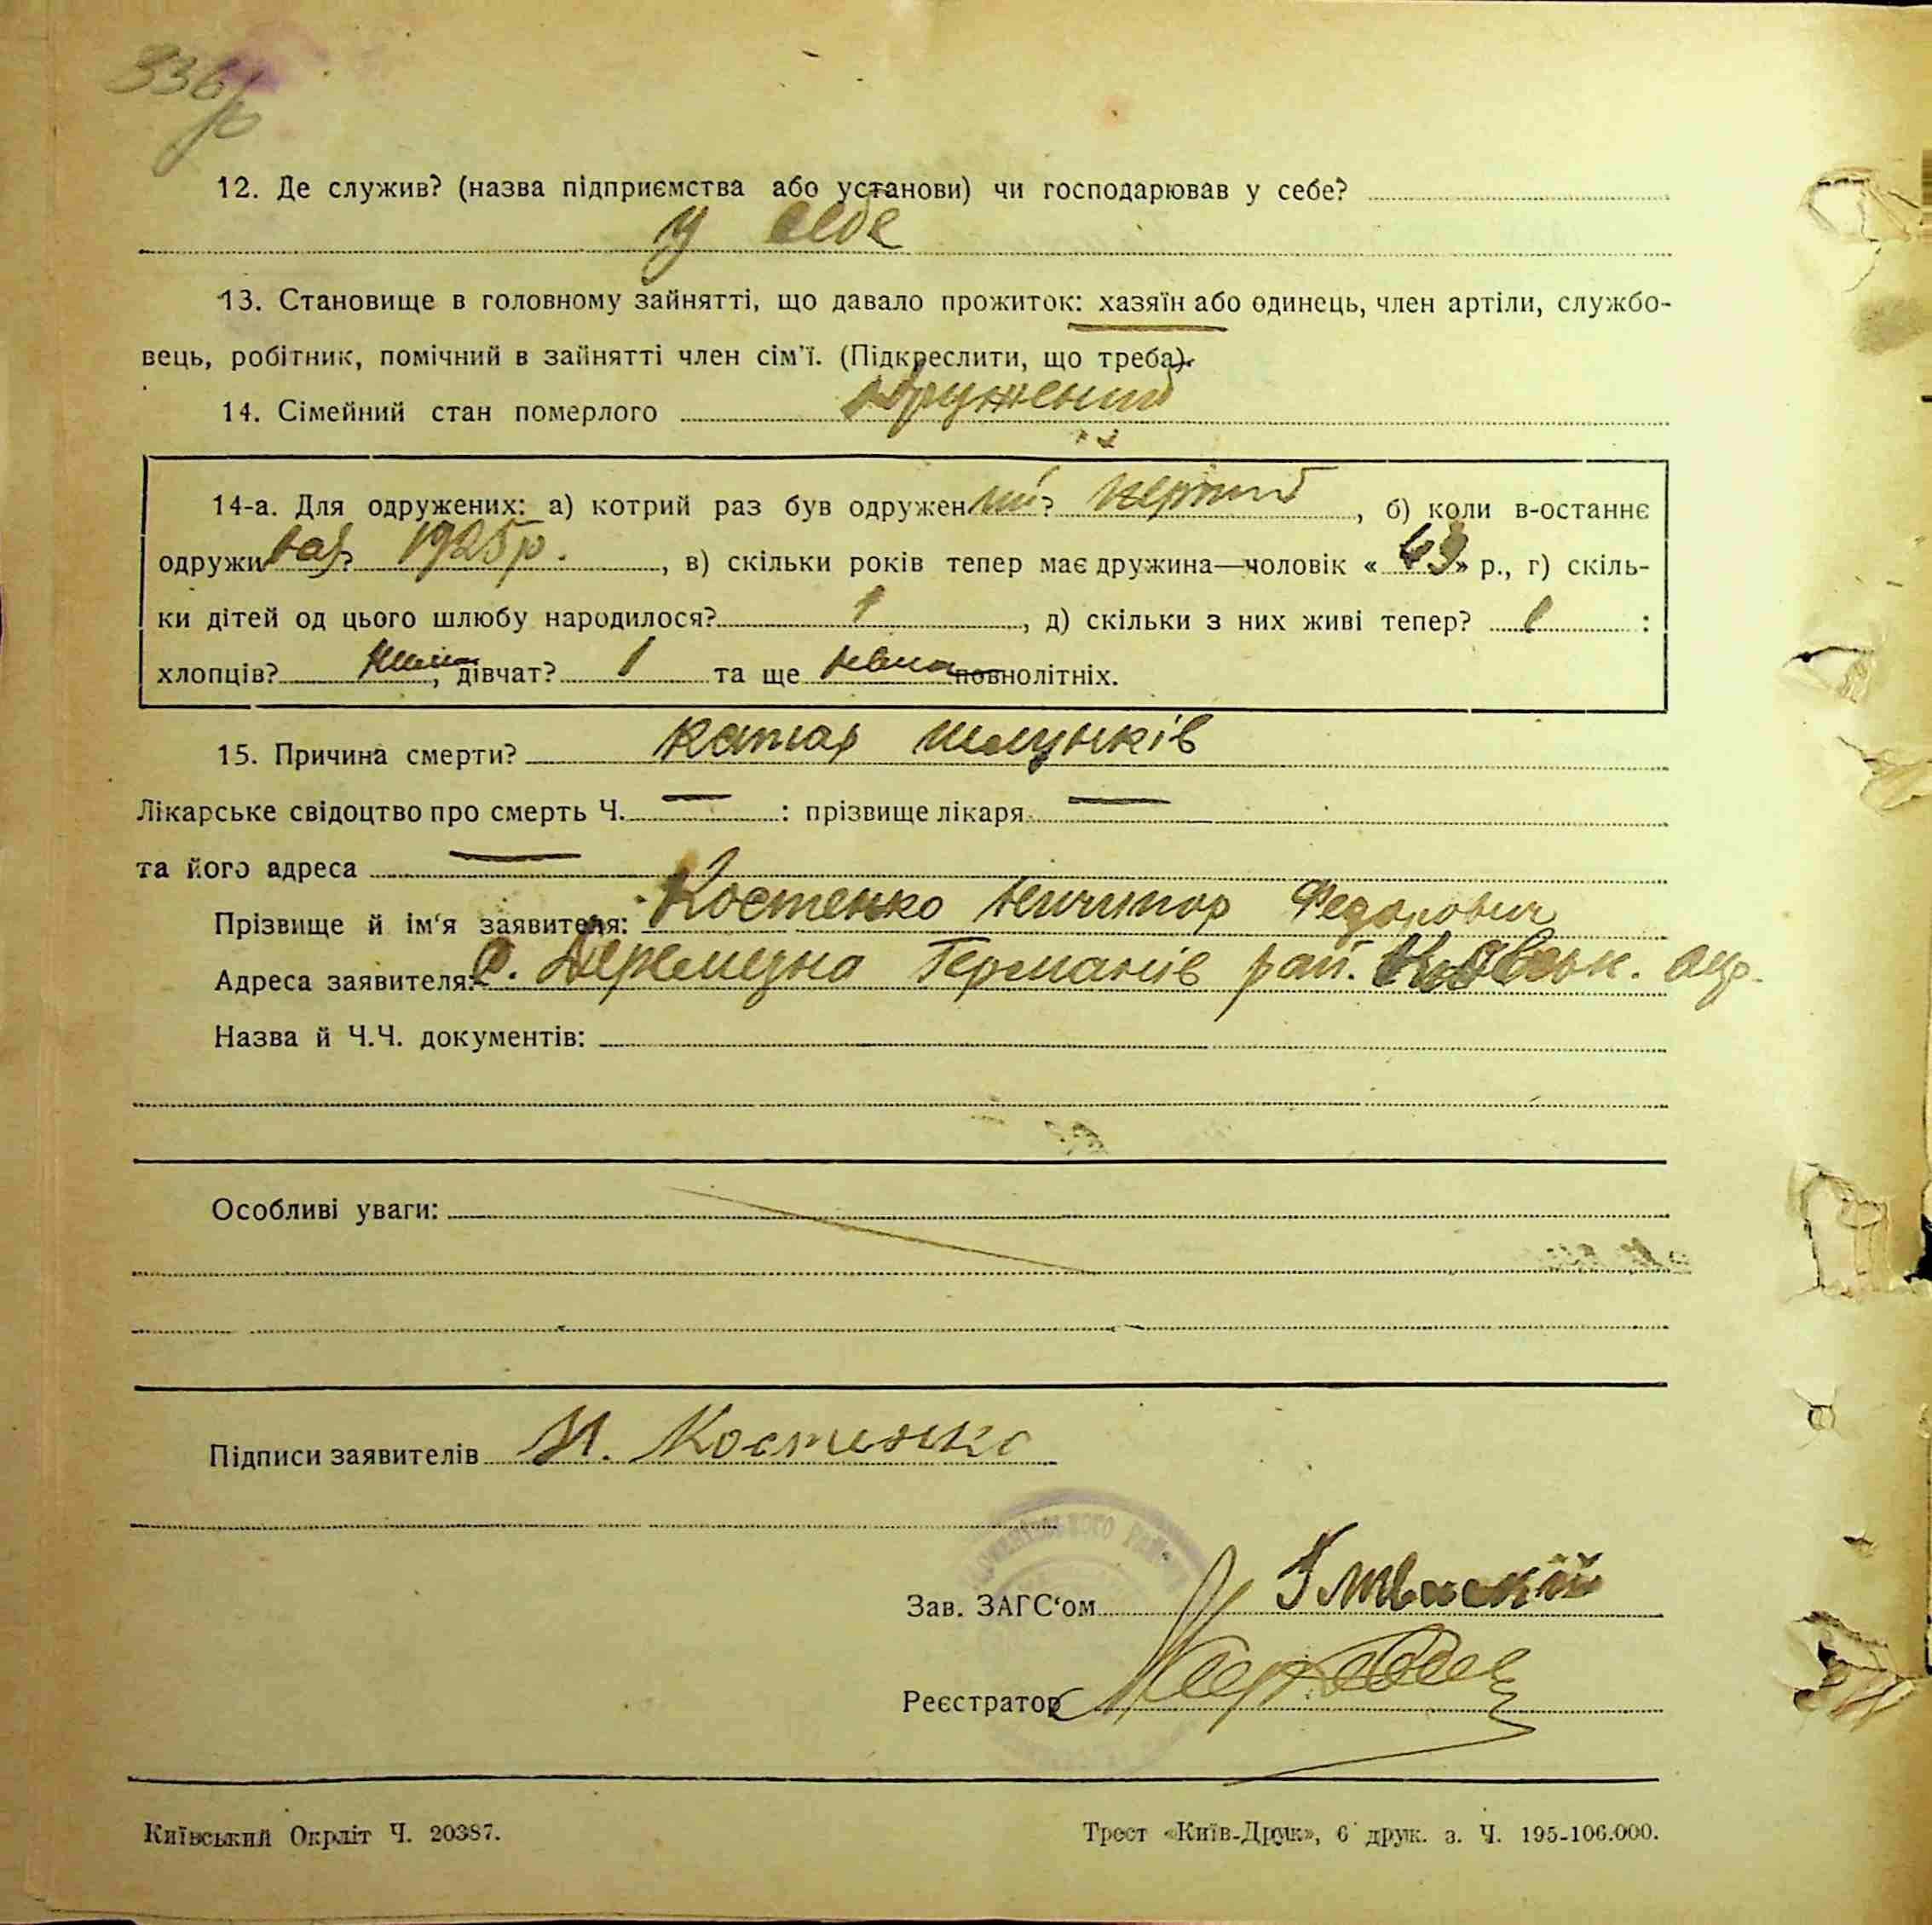 336
12. Де служив? (назва підприємства або установи) чи господарював у себе?
у себе
13. Становище в головному зайнятті, що давало прожиток: хазяїн або одинець, член артіли, службо-
вець, робітник, помічний в зайнятті член сім'ї. (Підкреслити, що треба).
14. Сімейний стан померлого одружений
14-а. Для одружених: а) котрий раз був одружений? перший, б) коли в-останнє
одружився? 1925р., в) скільки років тепер має дружина—чоловік «43» р., г) скіль-
ки дітей од цього шлюбу народилося? 1, д) скільки з них живі тепер? 1:
хлопців? нема, дівчат? 1 та ще нема повнолітніх.
15. Причина смерти? катар шлунків
Лікарське свідоцтво про смерть Ч. — : прізвище лікаря —
та його адреса —
Прізвище й ім'я заявителя: Костенко Ничипор Федорович
Адреса заявителя: С. Деремезна Германів рай. Київськ. окр.
Назва й Ч.Ч. документів:
Особливі уваги:
Підписи заявителів Н. Костенко
Зав. ЗАГС'ом
Реєстратор
Київський Окрліт Ч. 20387.
Трест «Київ-Друк», 6 друк. з. Ч. 195-106.000.